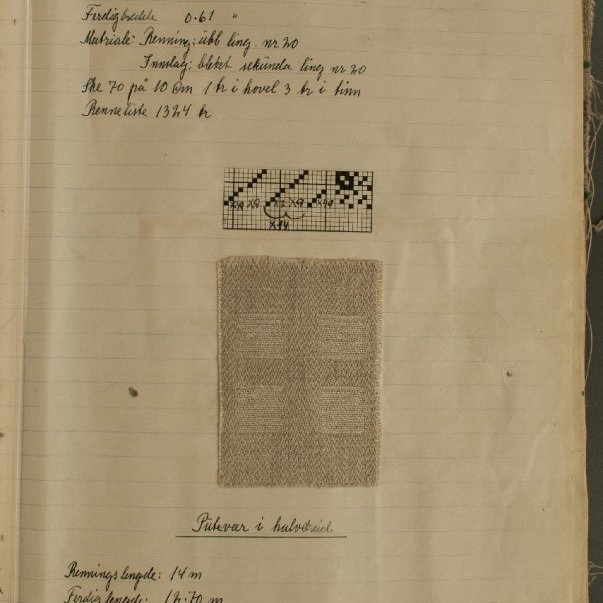 Ferdigbredde 0.61 "
Materiale: Renning: übl ling. nr 20
Innslag: bleket sekunda ling nr 20
Ske 70 på 10 cm 1 tr i hovel 3 tr i tinn
Renneliste 1324 tr
X14
Putevar i halvdreiel.
Renningslengde: 14 m
Ferdig lengde: 12.70 m